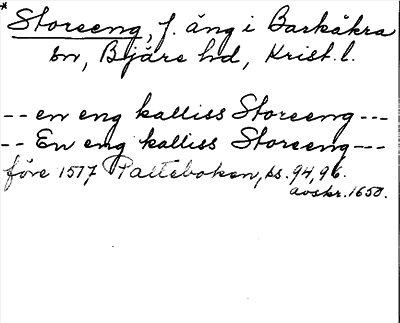 * Storeeng, f. äng i Barkåkra
sn, Bjäre hd, Krist. l.
-- en eng kalliss Storeeng ---
-- En eng kalliss Storeeng ---
före 1517 Palteboken, ss. 94, 96.
avskr. 1650.